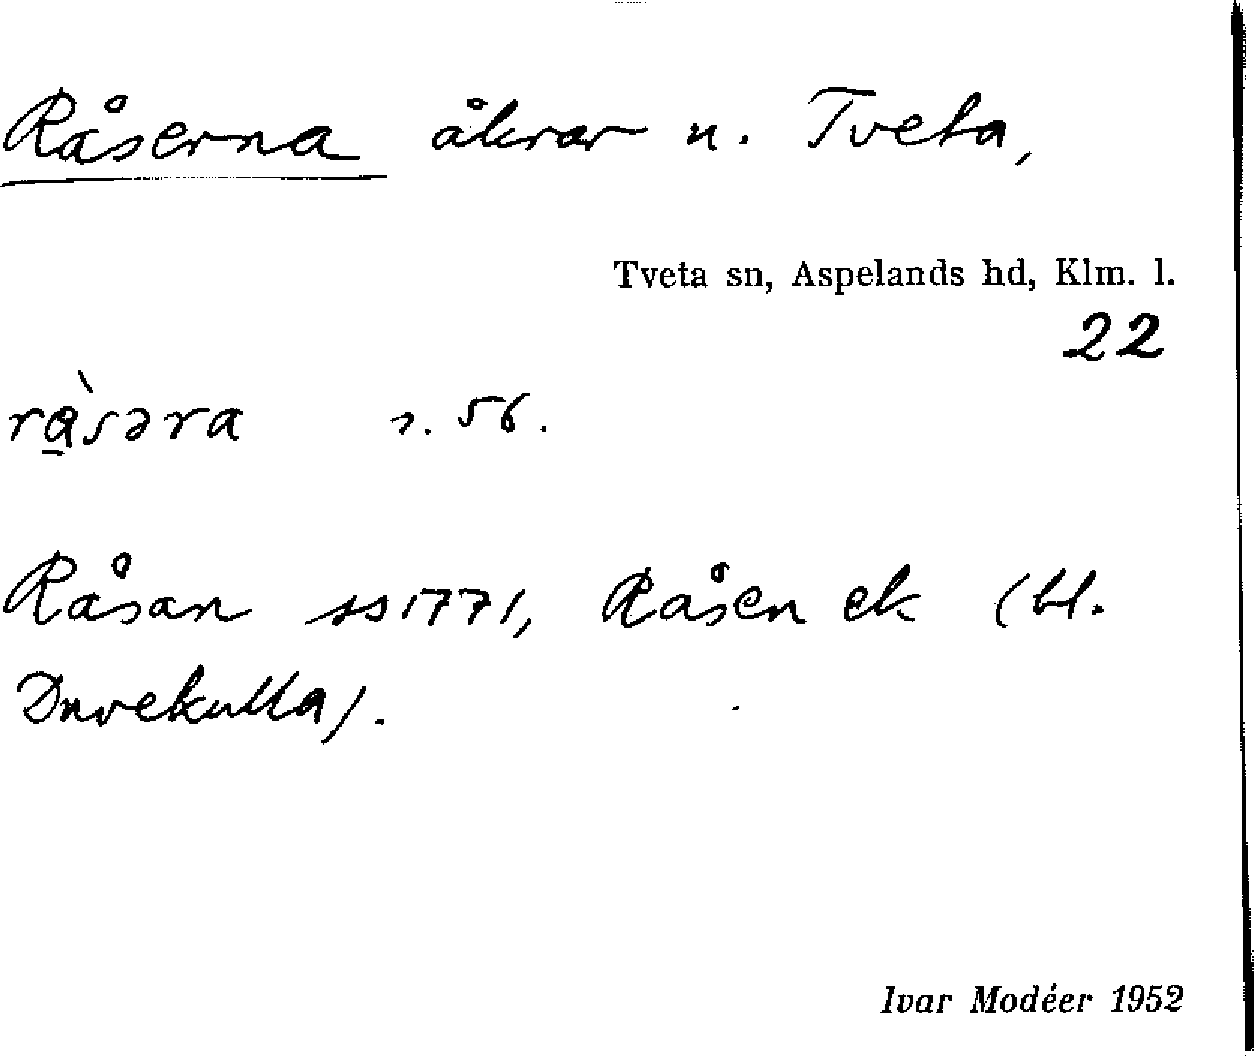 Råserna åkrar n. Tveta,
Tveta sn, Aspelands hd, Klm. l.
22
rɑ̱̀səra s. 56.
Råsan ss 1771, Råsen ek (bl.
Duvekulla).
Ivar Modéer 1952